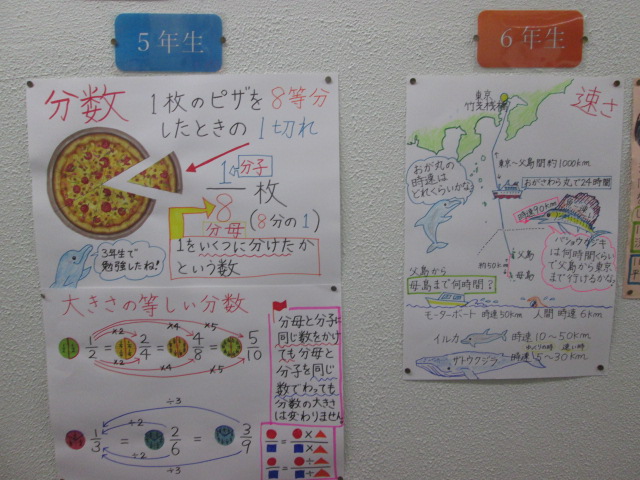 5年生
分数
1枚のピザを8等分
したときの1切れ
1 分子
8
枚
分母
(8分の1)
1をいくつに分けたか
という数
3年生で
勉強したね!
大きさの等しい分数
×2 ×4 ×5
1/2 = 2/4 = 4/8 = 5/10
×2 ×4 ×5
分母と分子に
同じ数をかけ
ても分母と
分子を同じ
数でわっても
分数の大きさ
は変わりません
÷3
÷2
1/3 = 2/6 = 3/9
÷2
÷3
6年生
速さ
東京
竹芝桟橋
東京〜父島間約1000km
おがさわら丸で24時間
おが丸の
時速は
どれくらいかな?
時速90km
バショウカジキ
は何時間くらい
で父島から東京
まで行けるかな?
父島
約50km
母島
父島から
母島まで何時間?
モーターボート 時速50km
人間 時速6km
イルカ 時速10〜50km
ゆっくりの時 速い時
ザトウクジラ 時速5〜30km